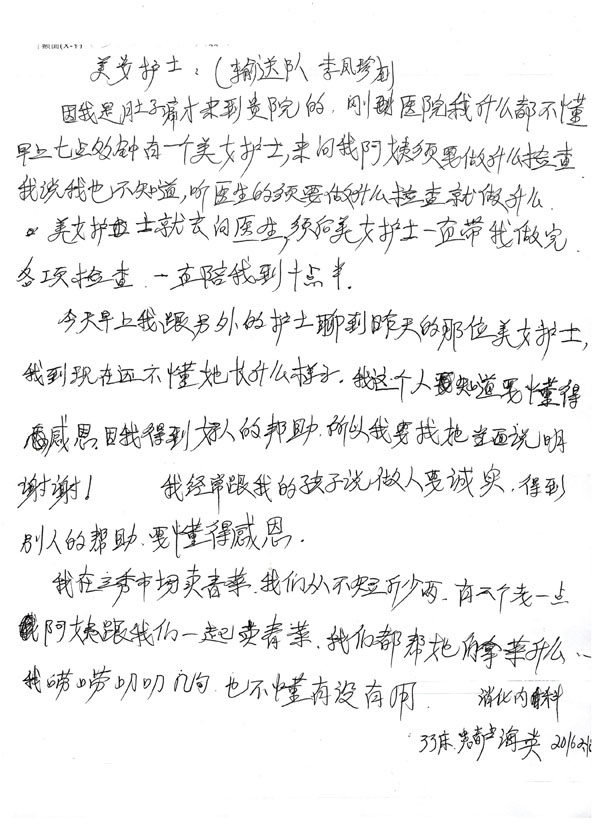 美女护士：（输送队 李凤珍
因我是肚子痛才来到贵院的．刚到医院我什么都不懂
早上七点多钟有一个美女护士，来问我阿姨须要做什么检查
我说我也不知道，听医生的须要做什么检查就做什么．
美女护士就去问医生，须后美女护士一直带我做完
各项检查．一直陪我到十点半．
今天早上我跟另外的护士聊到昨天的那位美女护士，
我到现在还不懂她长什么样子．我这个人知道要懂得
感恩．因我得到好人的帮助．所以我要找她当面说明
谢谢！ 我经常跟我的孩子说做人要诚实．得到
别人的帮助．要懂得感恩．
我在三秀市场卖青菜．我们从不短斤少两．有个老一点
阿姨跟我们一起卖青菜．我们都帮她拿菜什么…
我唠唠叨叨几句．也不懂有没有用． 消化内科
33床． 海英